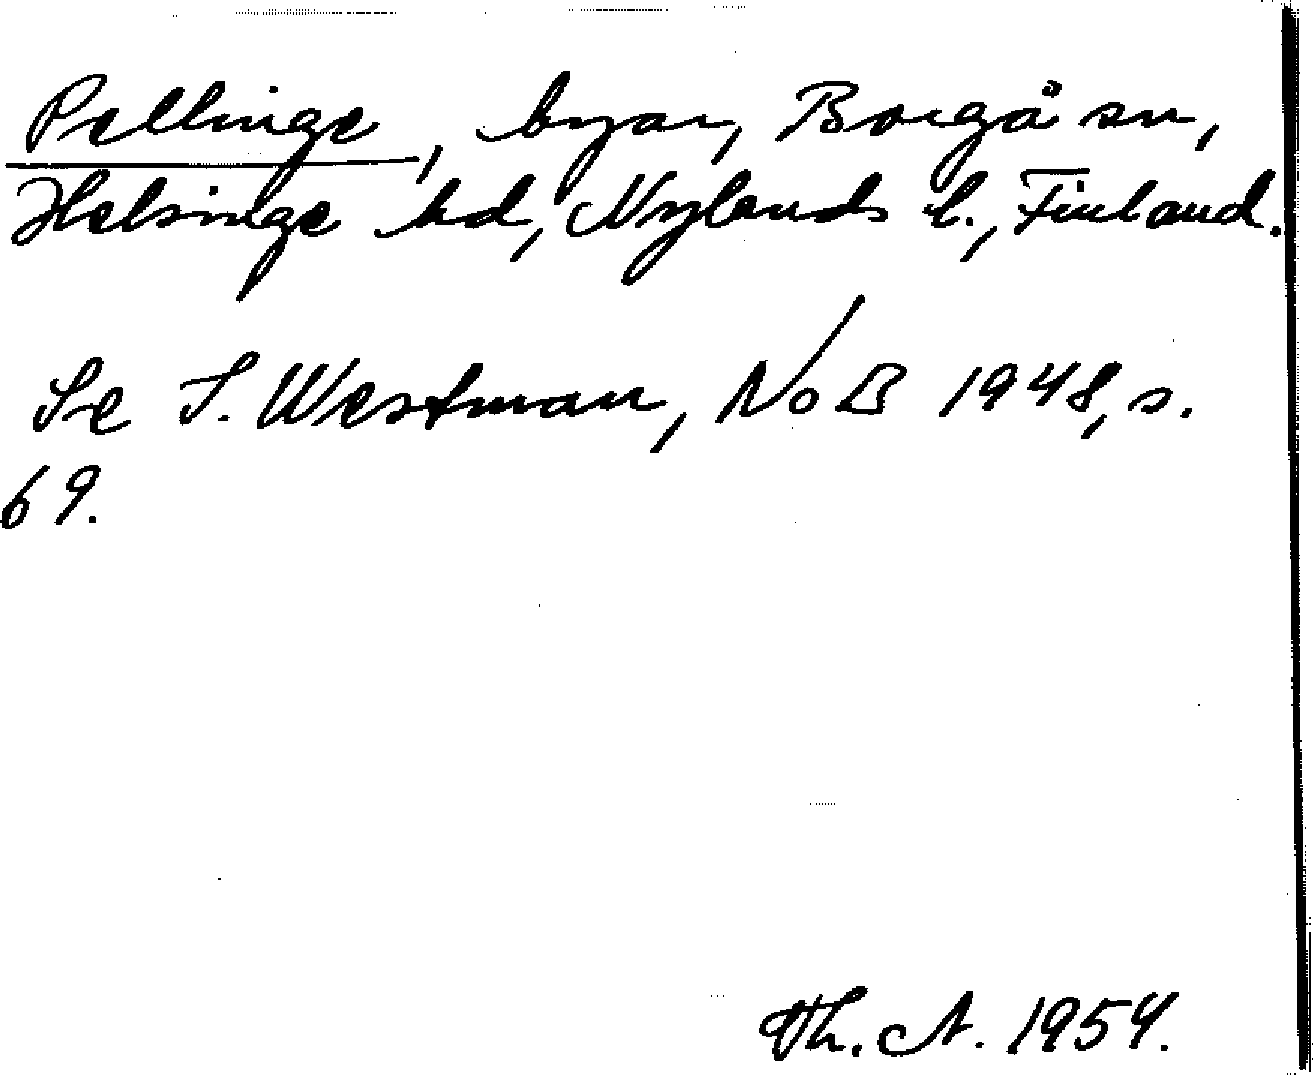 Pellinge, byar, Borgå sn,
Helsinge hd, Nylands l., Finland.
Se I. Westman, NoB 1948, s.
69.
Th. A. 1954.